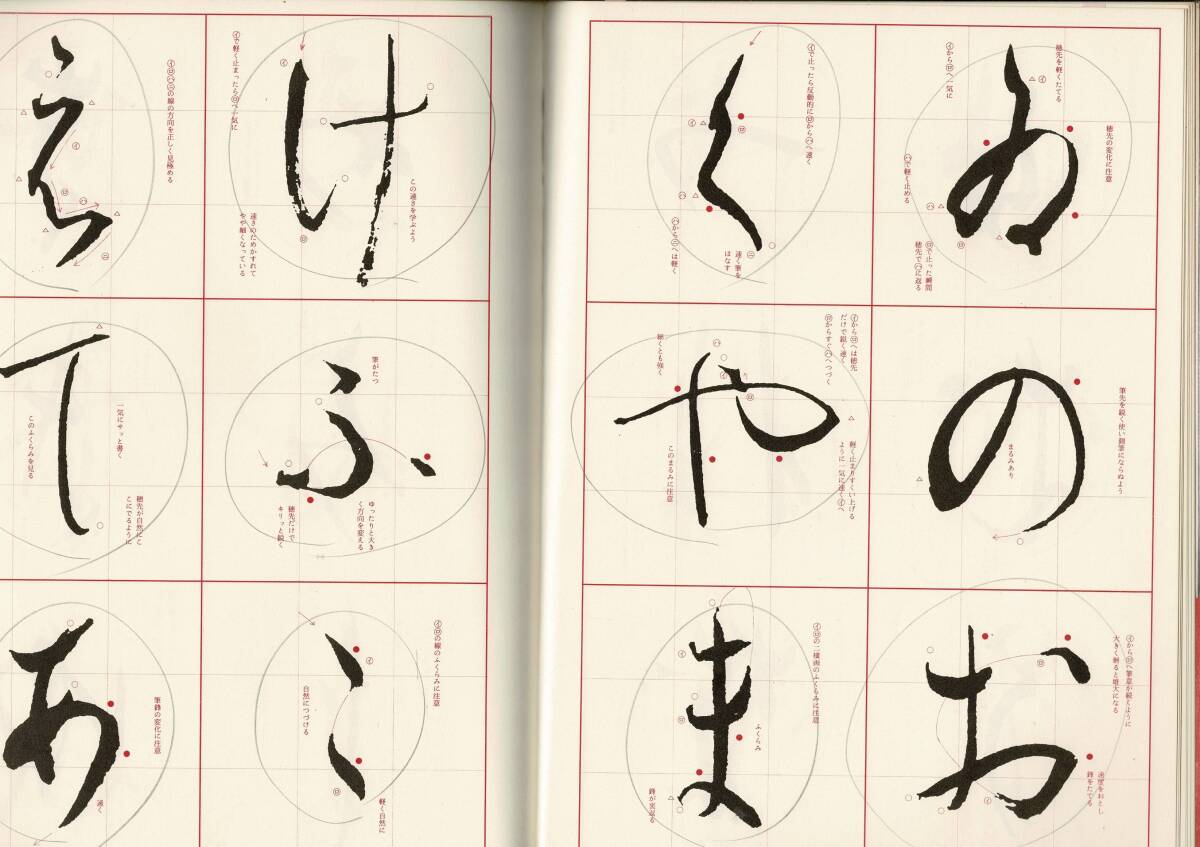 ゐ
穂先を軽くたてる
㋑から㋺へ一気に
穂先の変化に注意
㋩で軽く止める
㋺で止った瞬間
穂先で㋩に返る
の
筆先を鋭く使い側筆にならぬよう
まるみあり
お
㋑から㋺へ筆意が続くように
大きく廻ると雄大になる
速度をおとし
鋒をたてる
く
㋑で止ったら反動的に㋺から㋩へ速く
㋩から㋥へは軽く
速く筆を
はなす
や
㋑から㋺へは穂先
だけで鋭く速く
㋺からすぐ㋩へつづく
細くとも強く
このまるみに注意
軽く止まりすくい上げる
ように一気に速く㋑へ
ま
㋑㋺の二横画のふくらみに注意
ふくらみ
鋒が裏返る
け
㋑で軽く止まったら㋺へ一気に
この速さを学ぶよう
速さのためかすれて
やや細くなっている
ふ
筆がたつ
ゆったりと大き
く方向を変える
穂先だけで
キリッと鋭く
こ
㋑㋺の線のふくらみに注意
自然につづける
軽く自然に
え
㋑㋺㋩㋥の線の方向を正しく見極める
て
一気にサッと書く
このふくらみを見る
穂先が自然にこ
こにでるように
あ
筆鋒の変化に注意
速く